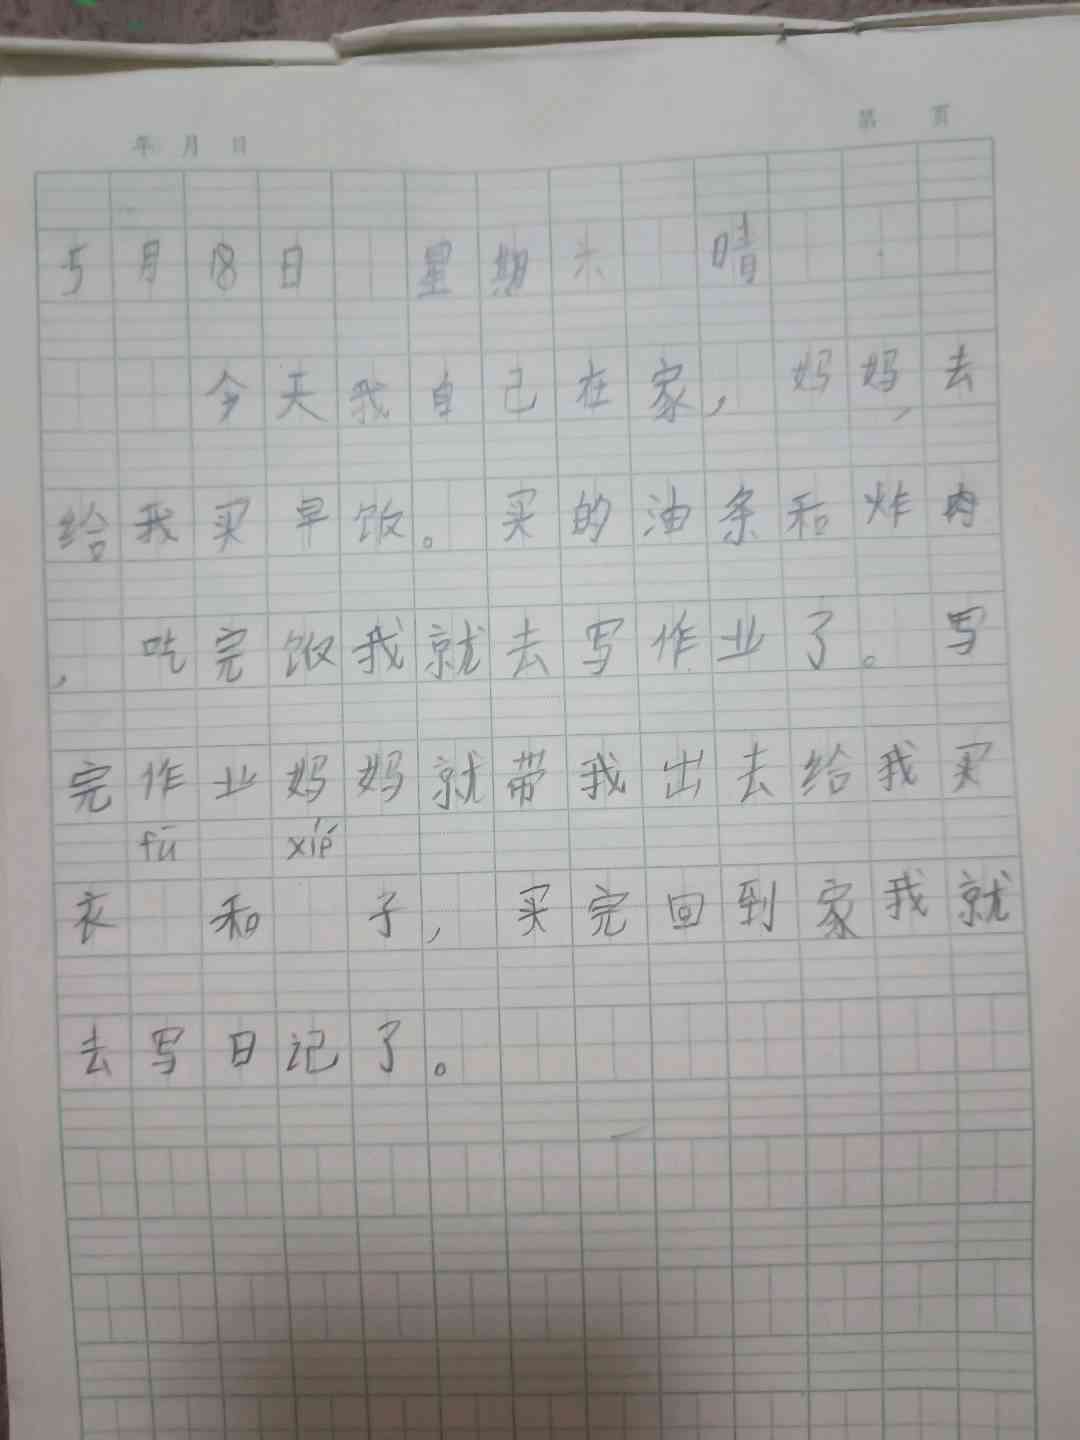 年 月 日 第 页
5月18日 星期六 晴
今天我自己在家，妈妈去
给我买早饭。买的油条和炸肉
，吃完饭我就去写作业了。写
完作业妈妈就带我出去给我买
fū xié
衣 和 子，买完回到家我就
去写日记了。